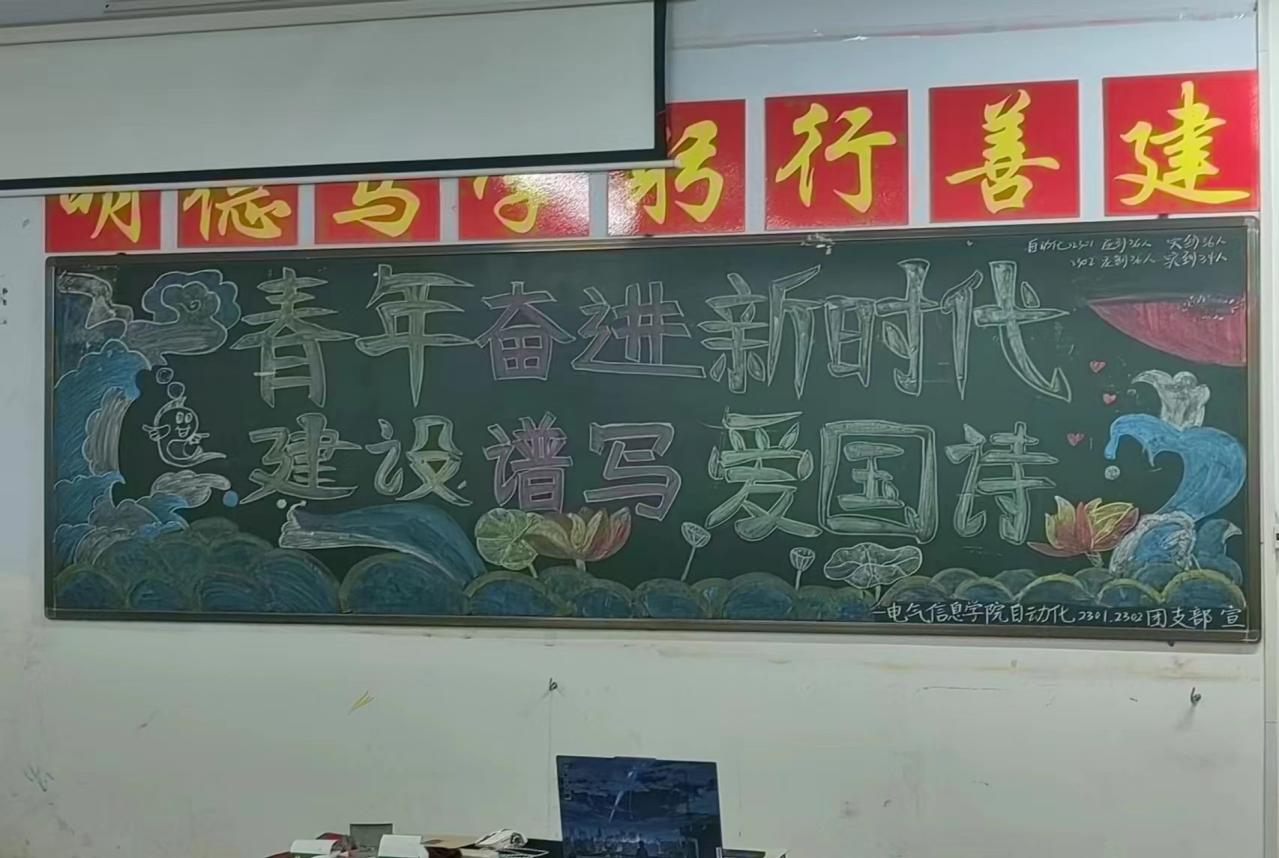 明德笃学躬行善建
自动化2301 应到36人 实到36人
2302 应到36人 实到34人
青年奋进新时代
建设谱写爱国诗
电气信息学院自动化2301.2302团支部 宣